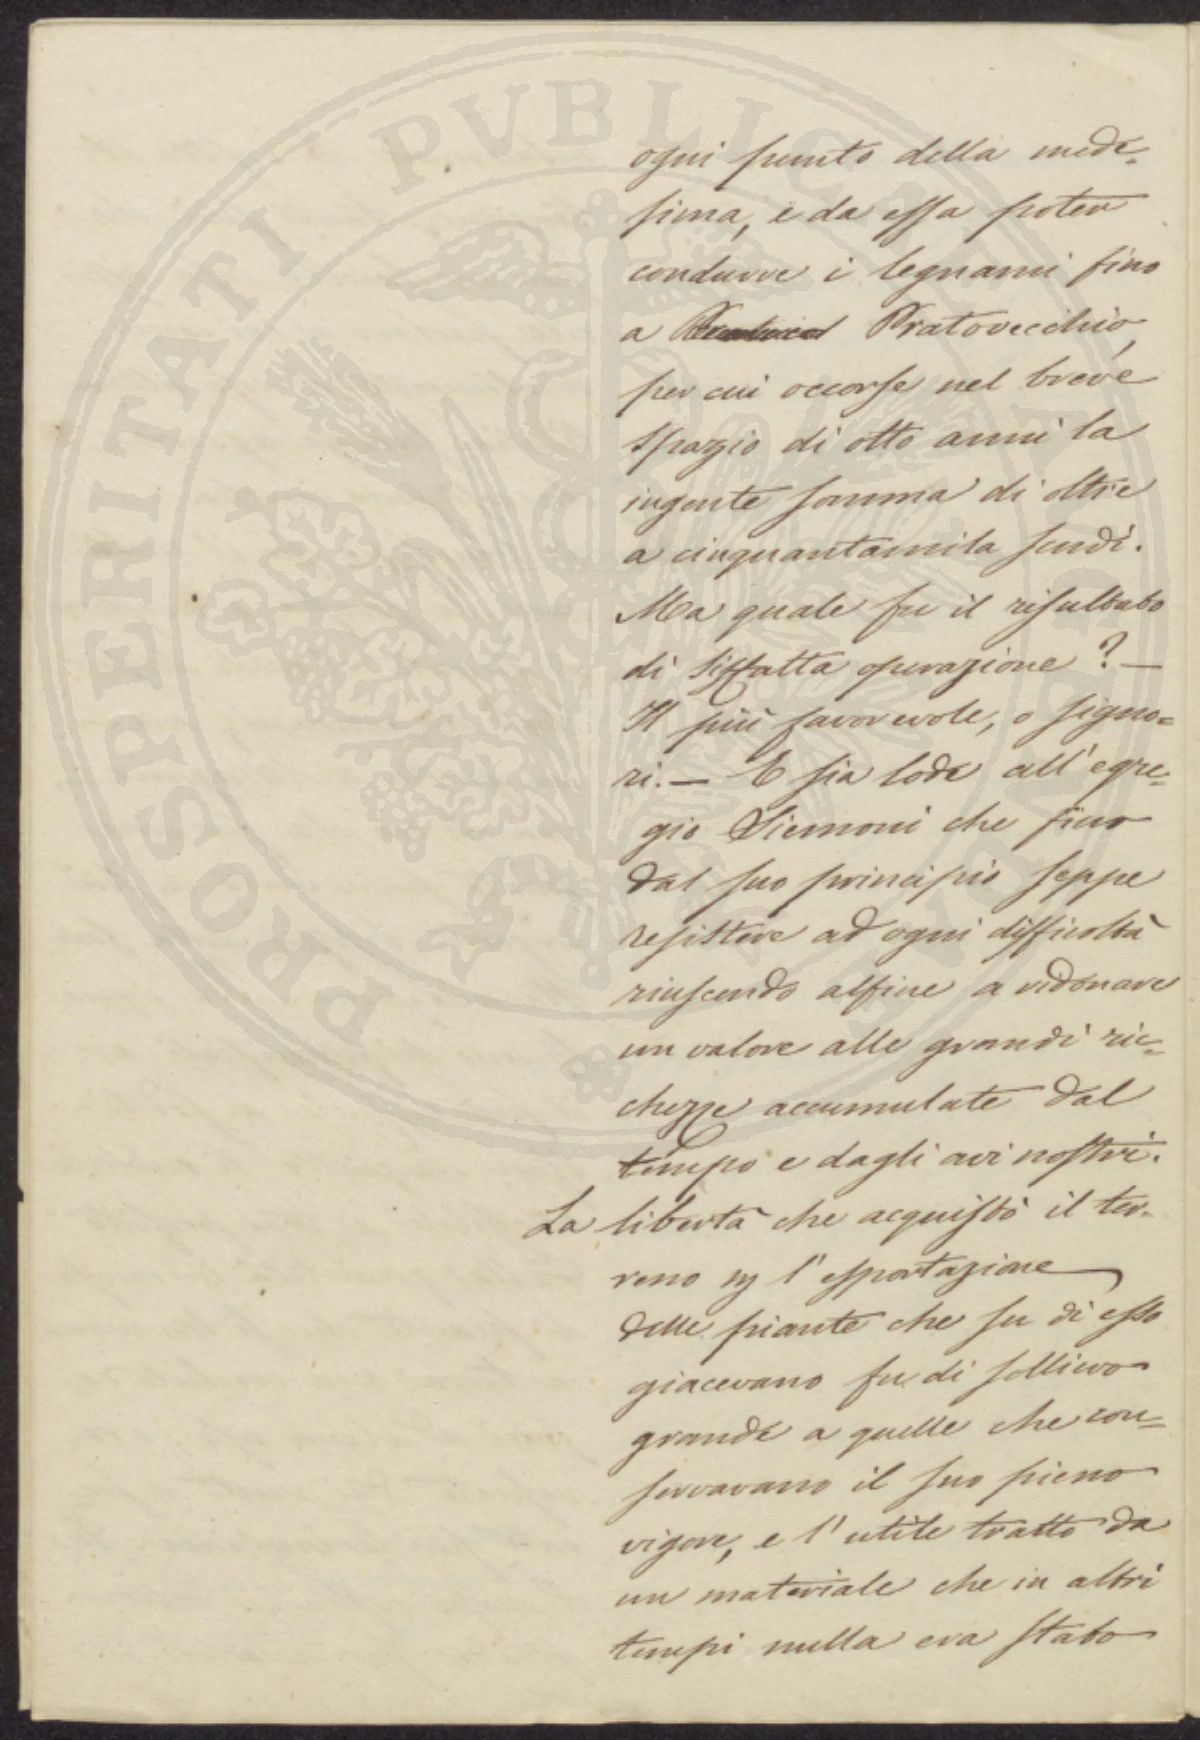 ogni punto della mede-
sima, e da essa poter
condurre i legnami fino
a Pratovecchio,
per cui occorse nel breve
spazio di otto anni la
ingente somma di oltre
a cinquantamila scudi.
Ma quale fu il risultato
di siffatta operazione? —
Il più favorevole, o signo=
ri. — E sia lode all'egre=
gio Siemoni che fino
dal suo principio seppe
resistere ad ogni difficoltà
riuscendo alfine a ridonare
un valore alle grandi ric=
chezze accumulate dal
tempo e dagli avi nostri.
La libertà che acquistò il ter-
reno l'esportazione
delle piante che su di esso
giacevano fu di sollievo
grande a quelle che con=
servavano il suo pieno
vigore, e l'utile tratto da
un materiale che in altri
tempi nulla era stato
PROSPERITATI PVBLICAE